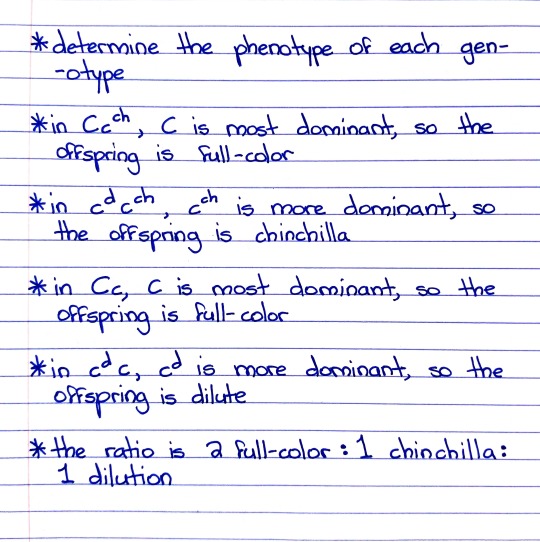 *determine the phenotype of each gen-
-otype
*in Cc^ch, C is most dominant, so the
offspring is full-color
*in c^d c^ch, c^ch is more dominant, so
the offspring is chinchilla
*in Cc, C is most dominant, so the
offspring is full-color
*in c^d c, c^d is more dominant, so the
offspring is dilute
*the ratio is 2 full-color : 1 chinchilla :
1 dilution